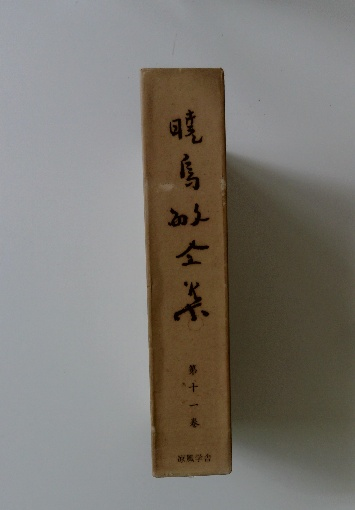 暁烏敏全集
第十一巻
涼風学舎